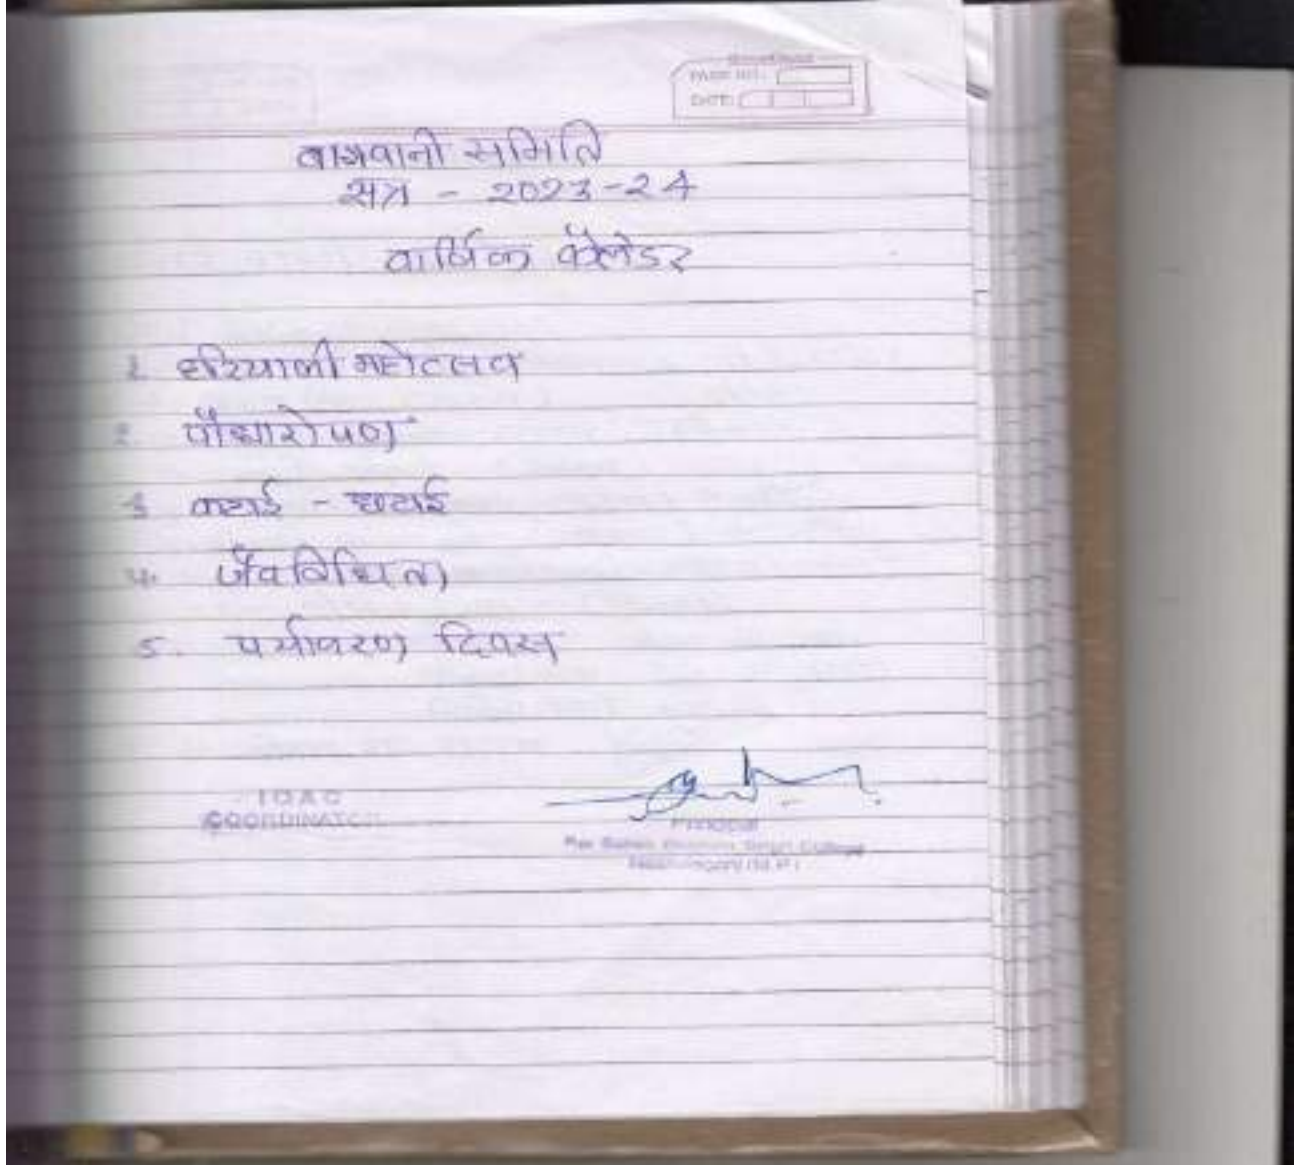 PAGE NO.:
DATE:
बागवानी समिति
सत्र - 2023-24
वार्षिक कैलेंडर
1. हरियाली महोत्सव
2. पौधारोपण
3. कटाई - छटाई
4. जैवविविधता
5. पर्यावरण दिवस
IQAC
COORDINATOR
Principal
College